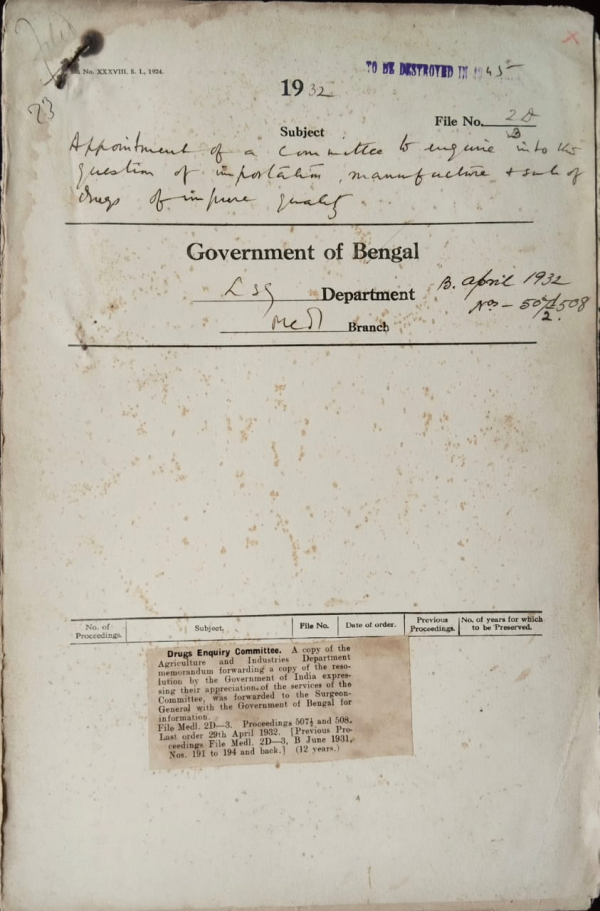 No. XXXVIII. S. I., 1924.
TO BE DESTROYED IN 1945
23
1932
File No. 2D
3
Subject
Appointment of a Committee to enquire into the
question of importation, manufacture & sale of
drugs of impure quality.
Government of Bengal
LSG Department
B. April 1932
Medl Branch
Nos - 507½ & 508
No. of Proceedings. Subject. File No. Date of order. Previous Proceedings. No. of years for which to be Preserved.
Drugs Enquiry Committee. A copy of the
Agriculture and Industries Department
memorandum forwarding a copy of the reso-
lution by the Government of India expres-
sing their appreciation of the services of the
Committee, was forwarded to the Surgeon-
General with the Government of Bengal for
information.
File Medl. 2D—3. Proceedings 507½ and 508.
Last order 29th April 1932. [Previous Pro-
ceedings File Medl. 2D—3, B June 1931,
Nos. 191 to 194 and back.] (12 years.)